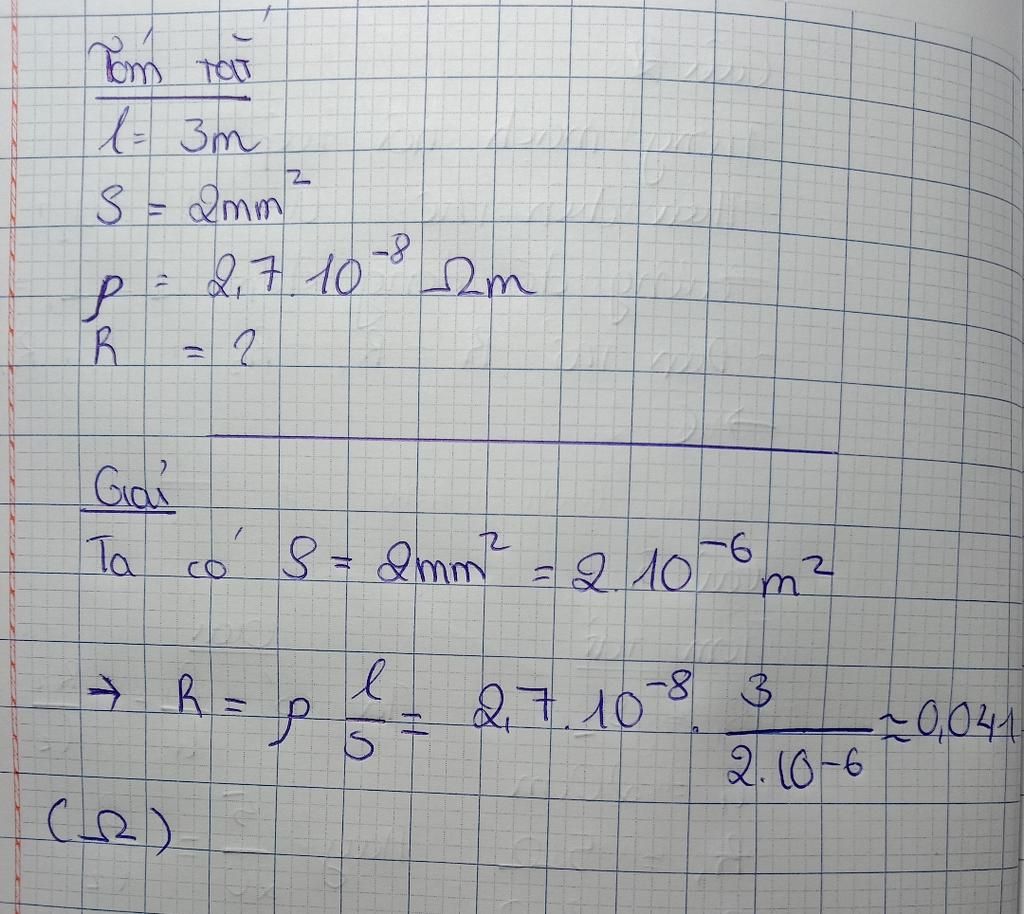 Tóm tắt
l = 3m
S = 2mm²
ρ = 2,7.10⁻⁸ Ωm
R = ?
Giải
Ta có S = 2mm² = 2.10⁻⁶ m²
→ R = ρ l/S = 2,7.10⁻⁸ . 3/(2.10⁻⁶) ≈ 0,041
(Ω)